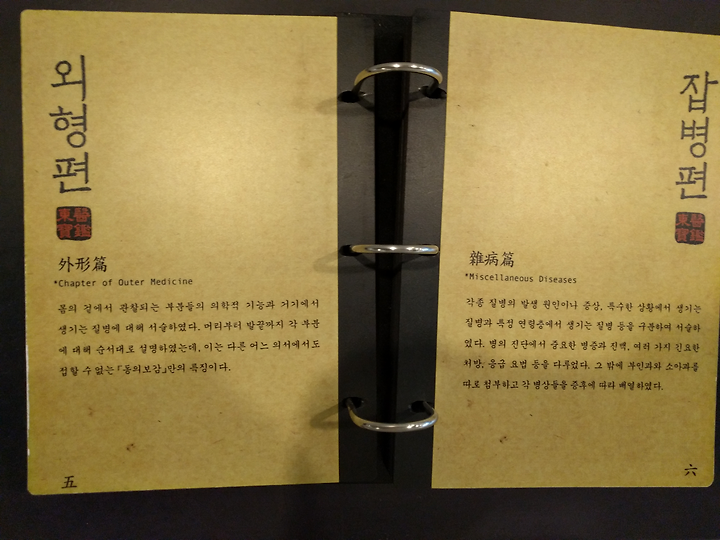 외형편
東醫寶鑑
外形篇
*Chapter of Outer Medicine
몸의 겉에서 관찰되는 부분들의 의학적 기능과 거기에서
생기는 질병에 대해 서술하였다. 머리부터 발끝까지 각 부분
에 대해 순서대로 설명하였는데, 이는 다른 어느 의서에서도
접할 수 없는 「동의보감」만의 특징이다.
五
잡병편
東醫寶鑑
雜病篇
*Miscellaneous Diseases
각종 질병의 발생 원인이나 증상, 특수한 상황에서 생기는
질병과 특정 연령층에서 생기는 질병 등을 구분하여 서술하
였다. 병의 진단에서 중요한 병증과 진맥, 여러 가지 긴요한
처방, 응급 요법 등을 다루었다. 그 밖에 부인과와 소아과를
따로 첨부하고 각 병상들을 증후에 따라 배열하였다.
六